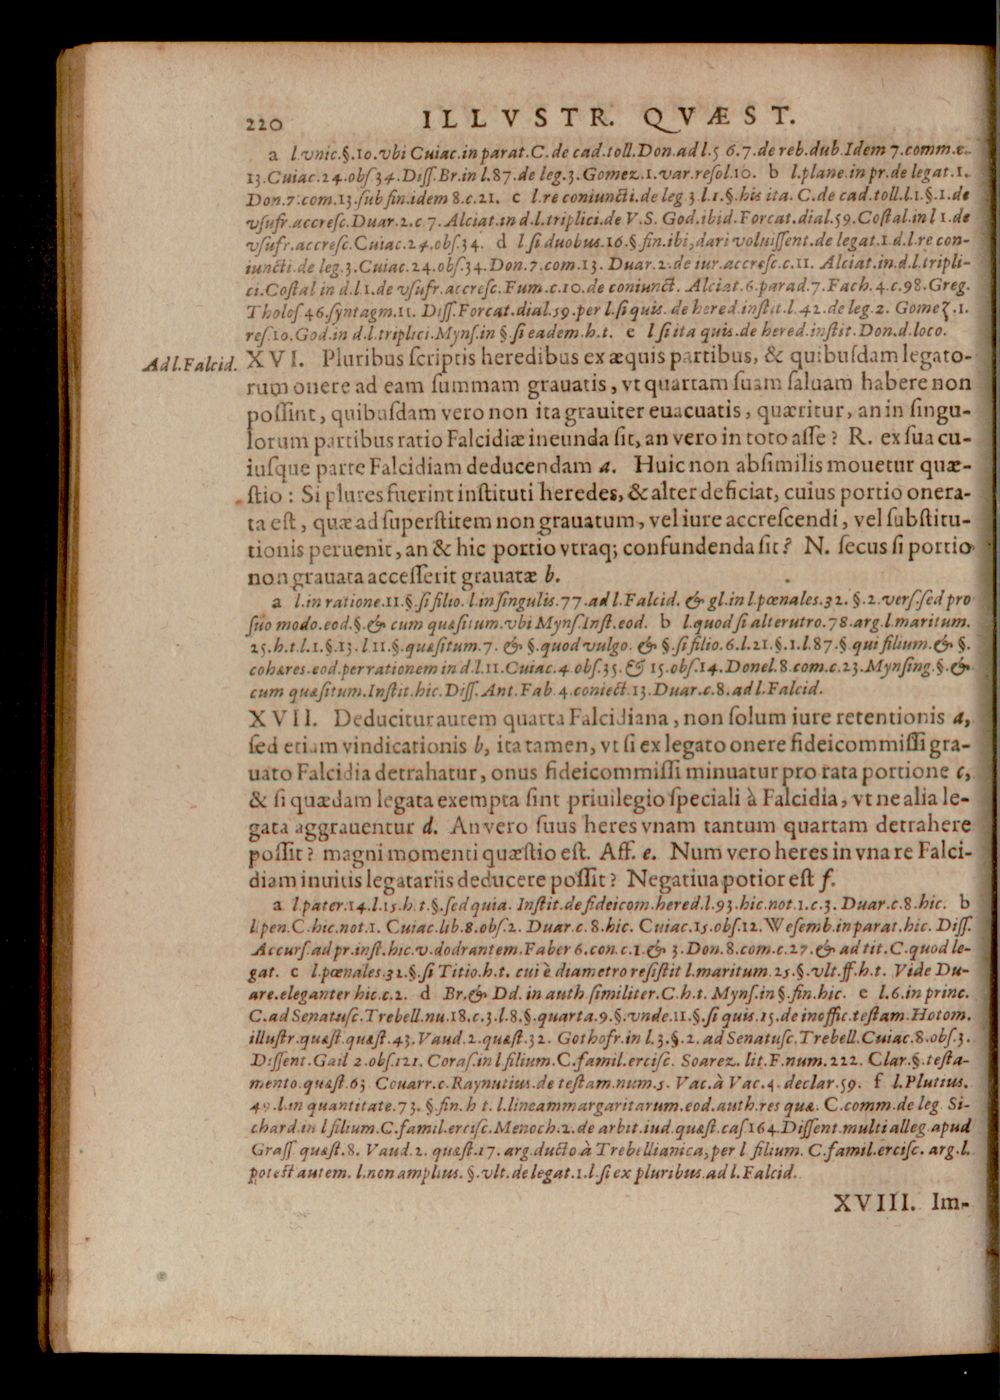 220 ILLVSTR. QVÆST.
a l.vnic.§.10.vbi Cuiac.in parat.C.de cad.toll.Don.ad l.5 6.7.de reb.dub.Idem 7.comm.c.
13.Cuiac.24.obſ.34.Diſſ.Br.in l.87.de leg.3.Gomez.1.var.reſol.10. b l.plane.in pr.de legat.1.
Don.7.com.13.ſub fin.idem 8.c.21. c l.re coniuncti.de leg.3.l.1.§.his ita.C.de cad.toll.l.1.§.1.de
vſufr.accreſc.Duar.2.c.7.Alciat.in d.l.triplici.de V.S. God.ibid.Forcat.dial.59.Coſtal.in l 1.de
vſufr.accreſc.Cuiac.24.obſ.34. d l.ſi duobus.16.§.fin.ibi,dari voluiſſent.de legat.1.d.l.re con-
iuncti.de leg.3.Cuiac.24.obſ.34.Don.7.com.13. Duar.2.de iur.accreſc.c.11. Alciat.in.d.l.tripli-
ci.Coſtal in d.l 1.de vſufr.accreſc.Fum.c.10.de coniunct. Alciat.6.parad.7.Fach.4.c.98.Greg.
Tholoſ 46.ſyntagm.11. Diſſ.Forcat.dial.59.per l.ſi quis.de hered.inſtit.l.42.de leg.2. Gomez.1.
reſ.10.God.in d.l.triplici.Mynſ.in §.ſi eadem.h.t. e l ſi ita quis.de hered.inſtit.Don.d.loco.
Ad l.Falcid. XVI. Pluribus ſcriptis heredibus ex æquis partibus, & quibuſdam legato-
rum onere ad eam ſummam grauatis, vt quartam ſuam ſaluam habere non
poſſint, quibuſdam vero non ita grauiter euacuatis, quæritur, an in ſingu-
lorum partibus ratio Falcidiæ ineunda ſit, an vero in toto aſſe? R. ex ſua cu-
iuſque parte Falcidiam deducendam a. Huic non abſimilis mouetur quæ-
ſtio: Si plures fuerint inſtituti heredes, & alter deficiat, cuius portio onera-
ta eſt, quæ ad ſuperſtitem non grauatum, vel iure accreſcendi, vel ſubſtitu-
tionis peruenit, an & hic portio vtraq; confundenda ſit? N. ſecus ſi portio
non grauata acceſſerit grauatæ b.
a l.in ratione.11.§.ſi filio.l.in ſingulis.77.ad l.Falcid. & gl.in l.pœnales.32. §.2.verſ.ſed pro
ſuo modo.eod.§.& cum quæſitum.vbi Mynſ.Inſt.eod. b l.quod ſi alterutro.78.arg.l.maritum.
25.h.t.l.1.§.13.l 11.§.quæſitum.7. & §.quod vulgo. & §.ſi filio.6.l.21.§.1.l.87.§.qui filium.& §.
cohæres.eod.per rationem in d.l.11.Cuiac.4.obſ.35.& 15.obſ.14.Donel.8.com.c.23.Mynſing.§.&
cum quæſitum.Inſtit.hic.Diſſ.Ant.Fab.4.coniect.13.Duar.c.8.ad l.Falcid.
XVII. Deducitur autem quarta Falcidiana, non ſolum iure retentionis a,
ſed etiam vindicationis b, ita tamen, vt ſi ex legato onere fideicommiſſi gra-
uato Falcidia detrahatur, onus fideicommiſſi minuatur pro rata portione c,
& ſi quædam legata exempta ſint priuilegio ſpeciali à Falcidia, vt ne alia le-
gata aggrauentur d. An vero ſuus heres vnam tantum quartam detrahere
poſſit? magni momenti quæſtio eſt. Aff. e. Num vero heres in vna re Falci-
diam inuitis legatariis deducere poſſit? Negatiua potior eſt f.
a l.pater.14.l.15.h.t.§.ſed quia. Inſtit.de fideicom.hered.l.93.hic.not.1.c.3. Duar.c.8.hic. b
l.pen.C.hic.not.1. Cuiac.lib.8.obſ.2. Duar.c.8.hic. Cuiac.15.obſ.12.Weſemb.in parat.hic. Diſſ.
Accurſ.ad pr.inſt.hic.v.dodrantem.Faber 6.con.c.1.& 3.Don.8.com.c.27.& ad tit.C.quod le-
gat. c l.pœnales.32.§.ſi Titio.h.t. cui è diametro reſiſtit l.maritum.25.§.vlt.ff.h.t. Vide Du-
are.eleganter hic.c.2. d Br.& Dd. in auth ſimiliter.C.h.t. Mynſ.in §.fin.hic. e l.6.in princ.
C.ad Senatuſc.Trebell.nu.18.c.3.l.8.§.quarta.9.§.vnde.11.§.ſi quis.15.de inoffic.teſtam.Hotom.
illuſtr.quæſt.quæſt.43.Vaud.2.quæſt.32. Gothofr.in l.3.§.2.ad Senatuſc.Trebell.Cuiac.8.obſ.3.
Diſſent.Gail 2.obſ.121. Coraſ.in l filium.C.famil.erciſc. Soarez. lit.F.num.222. Clar.§.teſta-
mento.quæſt.63 Couarr.c.Raynutius.de teſtam.num.5. Vac.à Vac.4.declar.59. f l.Plutius.
49.l.in quantitate.73. §.fin.h t. l.lineam margaritarum.eod.auth.res quæ. C.comm.de leg. Si-
chard.in l filium.C.famil.erciſc.Menoch.2.de arbit.iud.quæſt.caſ 164.Diſſent.multi alleg.apud
Graſſ quæſt.8. Vaud.2. quæſt.17. arg.ducto à Trebellianica,per l filium. C.famil.erciſc. arg.l.
potest autem. l.non amplius. §.vlt.de legat.1.l.ſi ex pluribus.ad l.Falcid.
XVIII. Im-